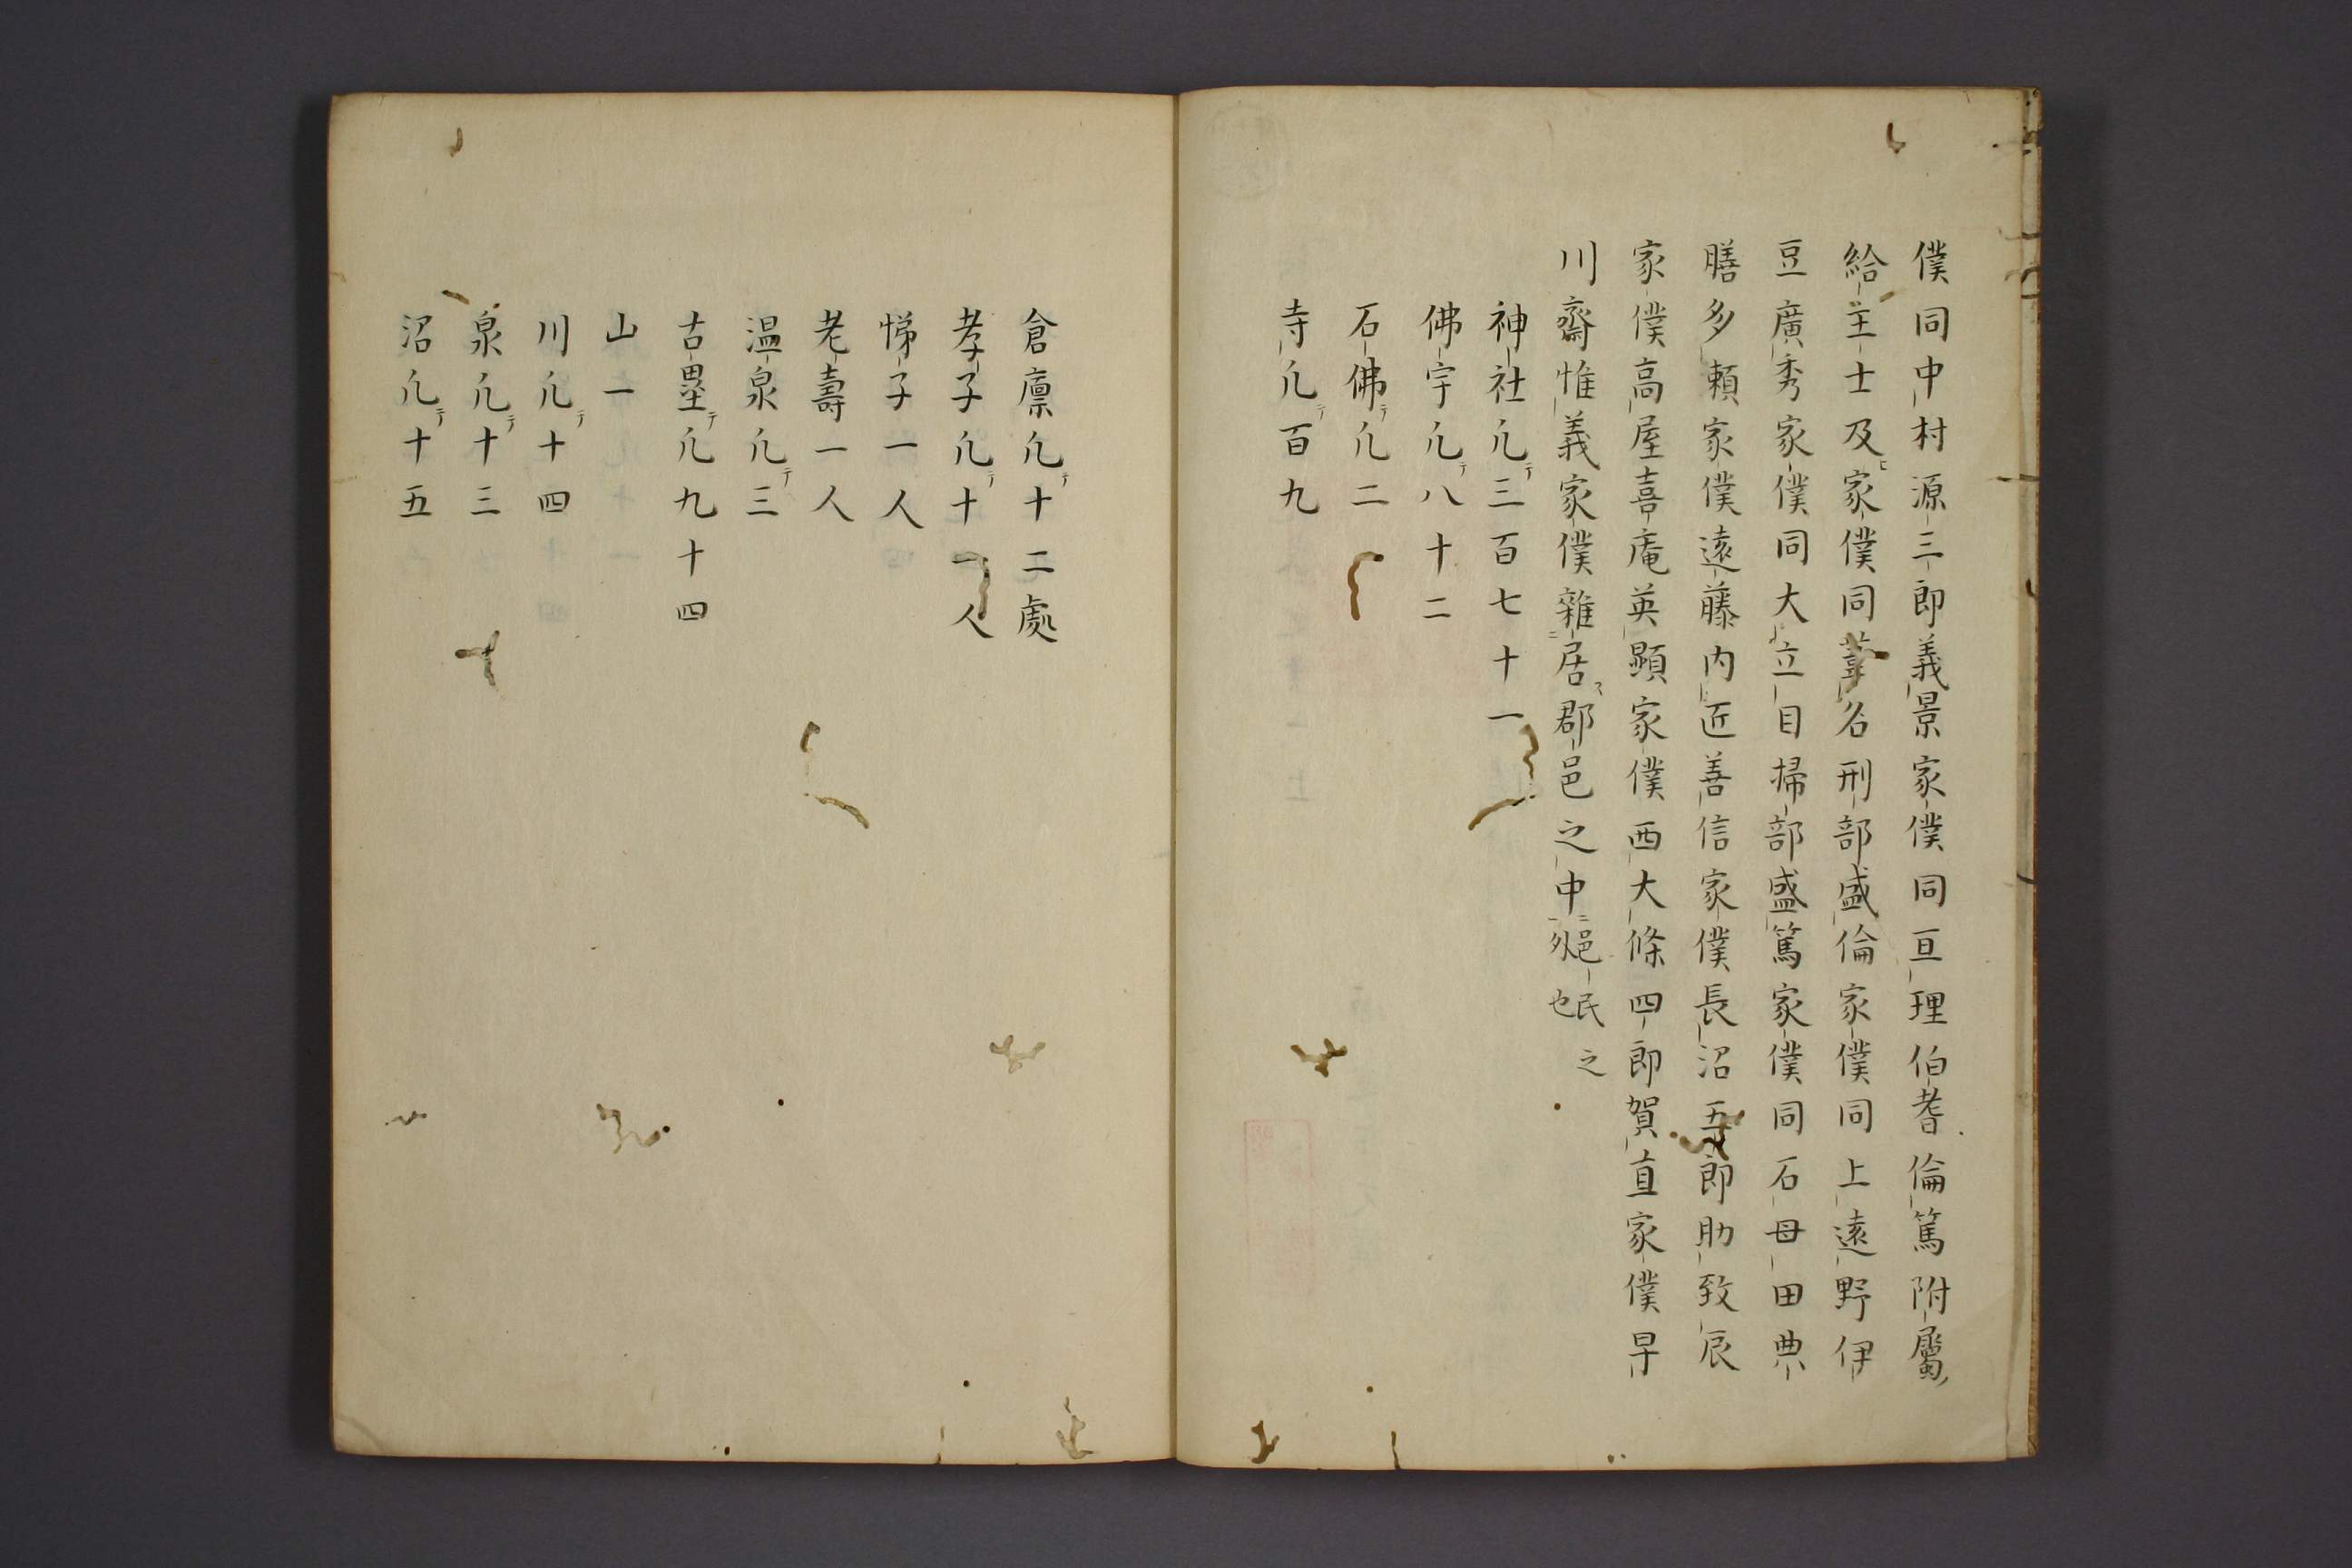 僕同中村源三郎義景家僕同亘理伯耆倫篤附屬
給主士及家僕同葦名刑部盛倫家僕同上遠野伊
豆廣秀家僕同大立目掃部盛篤家僕同石母田典
膳多頼家僕遠藤内匠善信家僕長沼五郎助致辰
家僕高屋喜庵英顕家僕西大條四郎賀直家僕早
川齋惟義家僕雜居郡邑之中邑民之外也
神社凢三百七十一
佛宇凢八十二
石佛凢二
寺凢百九
倉廩凢十二處
孝子凢十一人
悌子一人
老壽一人
温泉凢三
古塁凢九十四
山一
川凢十四
泉凢十三
沼凢十五